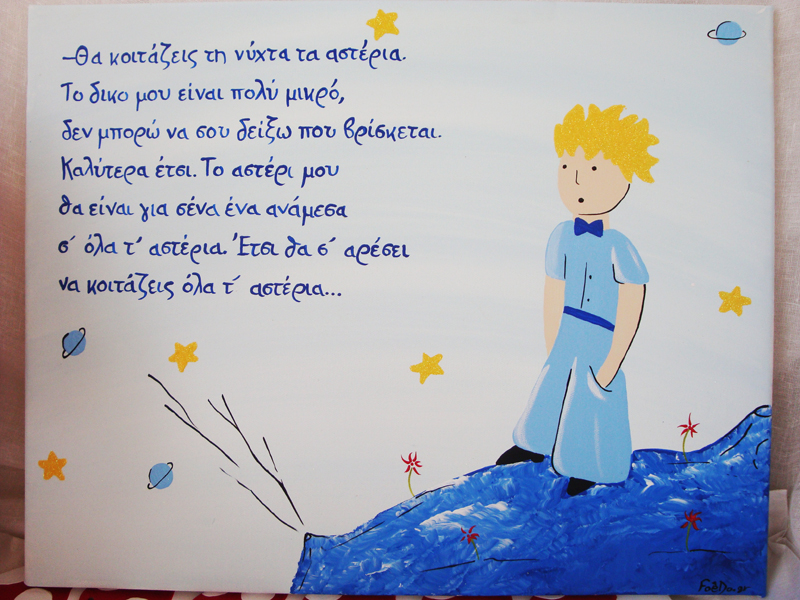 –Θα κοιτάζεις τη νύχτα τα αστέρια.
Το δικο μου είναι πολύ μικρό,
δεν μπορώ να σου δείξω που βρίσκεται.
Καλύτερα έτσι. Το αστέρι μου
θα είναι για σένα ένα ανάμεσα
σ΄ όλα τ΄ αστέρια. Έτσι θα σ΄ αρέσει
να κοιτάζεις όλα τ΄ αστέρια...